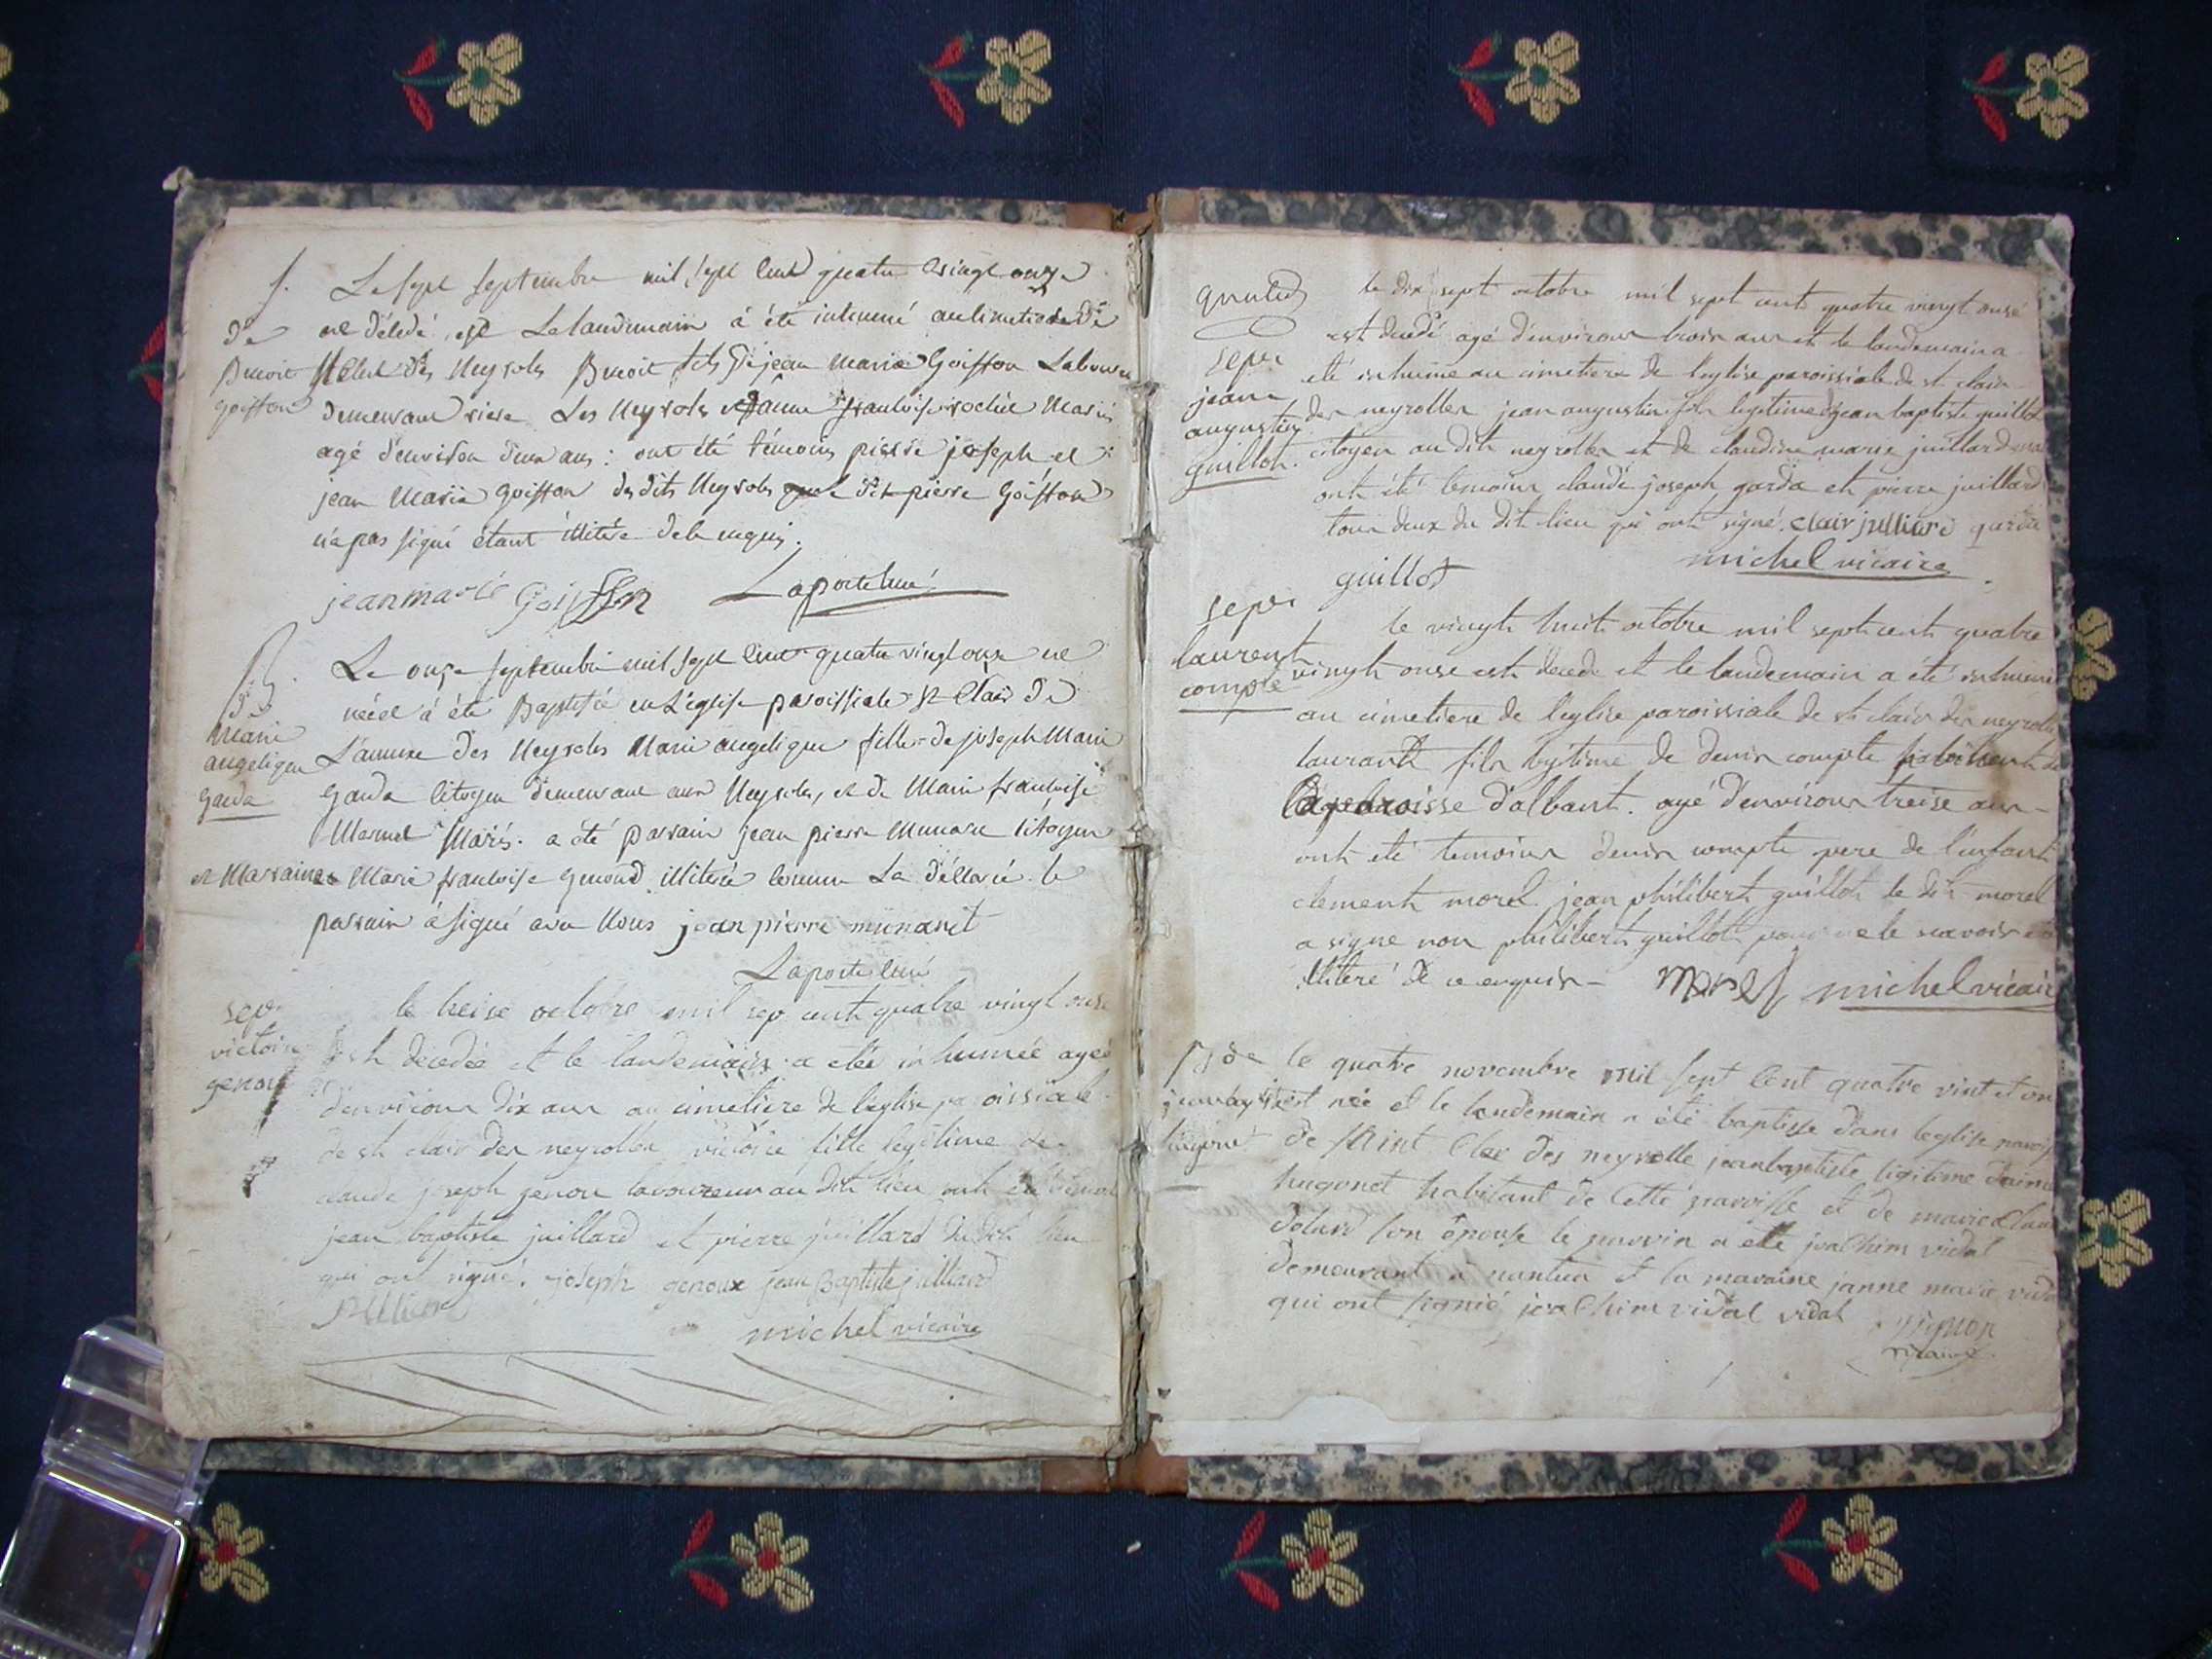 S.
de
Benoit
goiffon
Le sept septembre mil sept cent quatre vingt onze
est décédé et le landemain à été inhumé au cimetiere de
st Clair des Neyroles Benoit fils de jean Marie Goiffon Laboureur
demeurant riere Les Neyroles et
agé d'environ deux ans : ont été témoins pierre joseph et
jean Marie Goiffon desdits Neyroles que le dit pierre Goiffon
n'a pas signé étant illiteré de le requis.
jean marie Goiffon Laporte curé
B.
de
Marie
angelique
Garda
Le onze septembre mil sept cent quatre vingt onze est
néeet à été Baptisée en L'église paroissiale St Clair de
L'annexe des Neyroles Marie angelique fille de joseph Marie
Garda Citoyen demeurant aux Neyroles, et de Marie françoise
Mariés. a été parrain jean pierre Munaret Citoyen
et Marraine Marie françoise illiterée comme La déllaré. le
parrain à signé avec Nous jean pierre munaret
Laporte curé
sep.
victoire
genou
le treise octobre mil sep cent quatre vingt onse
est décedée et le landemain a etée inhumée agée
d'environ dix ans au cimetiere de l'église paroissiale
de st clair des neyrolles victoire fille legitime de
claude joseph genou laboureur au dit lieu ont été témoins
jean baptiste juillard et pierre juillard du dit lieu
qui ont signé. joseph genoux jean Baptiste julliard
julliard
michel vicaire
sepr
jean
augustin
guillot.
le dix sept octobre mil sept cent quatre vingt onse
est decedé agé d'environ trois ans et le landemain a
été inhumé au cimetiere de l'église paroissiale de st clair
des neyrolles jean augustin fils legitime de jean baptiste guillot
citoyen au dit neyrolles et de claudine marie juillard
ont été temoins claude joseph garda et pierre juillard
tous deux du dit lieu qui ont signé. clair julliard garda
guillot michel vicaire
sepr
laurent
compte
le vingt huit octobre mil sept cent quatre
vingt onse est decedé et le landemain a été inhumé
au cimetiere de l'église paroissiale de st clair des neyrolles
laurant fils legitime de denis compte
la paroisse d'albant. agé d'environ treise ans
ont été temoins denis compte pere de l'enfant
clement morel jean philibert guillot le dit morel
a signé non philibert guillot pour ne le scavoir
illiteré de ce enquis morel michel vicaire
jean baptiste
hugonet
le quatre novembre mil sept cent quatre vint et on
est née et le landemain a été baptisse dans leglise parois
de saint Cler des neyrolle jean baptiste legitime d'aime
hugonet habitant de cette paroisse et de marie
son épouse le parrin a eté joachim vidal
demeurant a nantua et la maraine janne marie vidal
qui ont signié joachim vidal vidal
vicaire